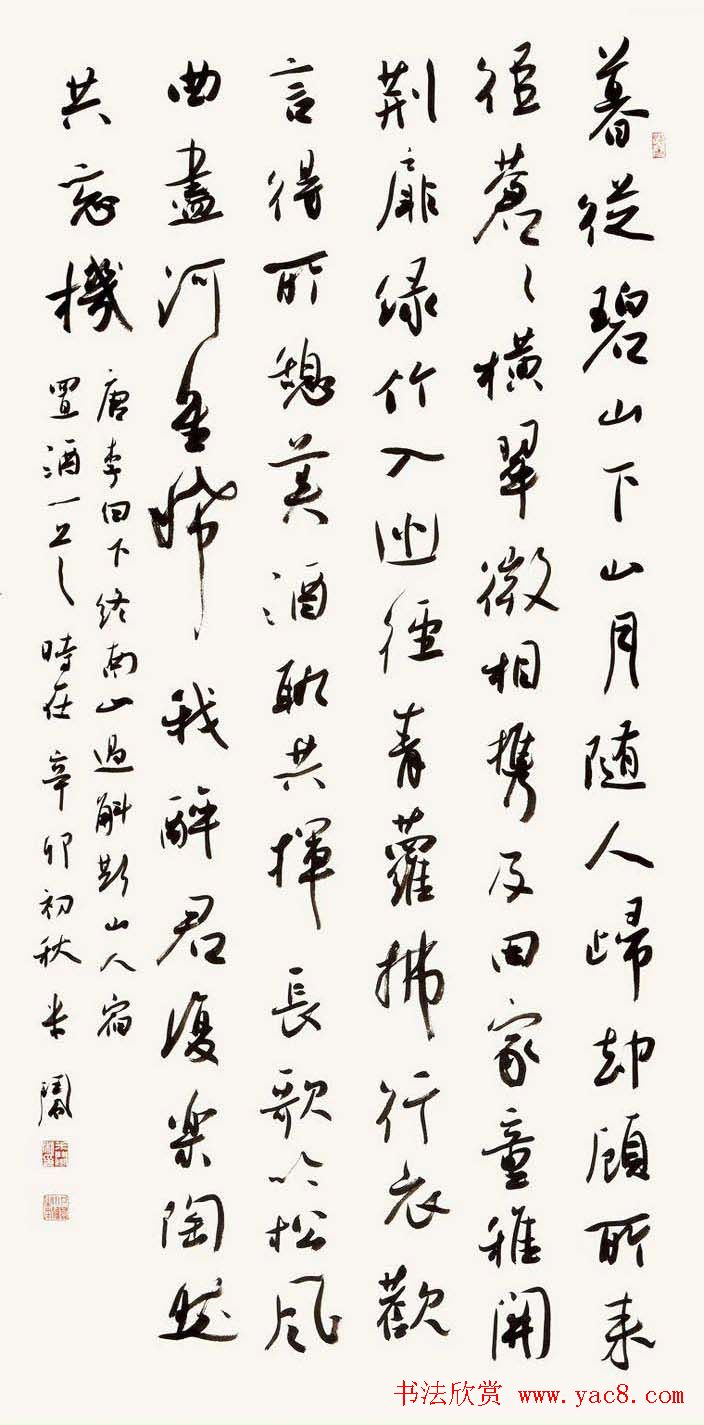 暮從碧山下山月随人歸却顧所来
徑蒼々橫翠微相携及田家童稚開
荆扉緑竹入幽徑青蘿拂行衣歡
言得所憩美酒聊共揮長歌吟松風
曲盡河星稀我醉君復楽陶然
共忘機
唐李白下終南山過斛斯山人宿
置酒一首時在辛卯初秋米
书法欣赏 www.yac8.com